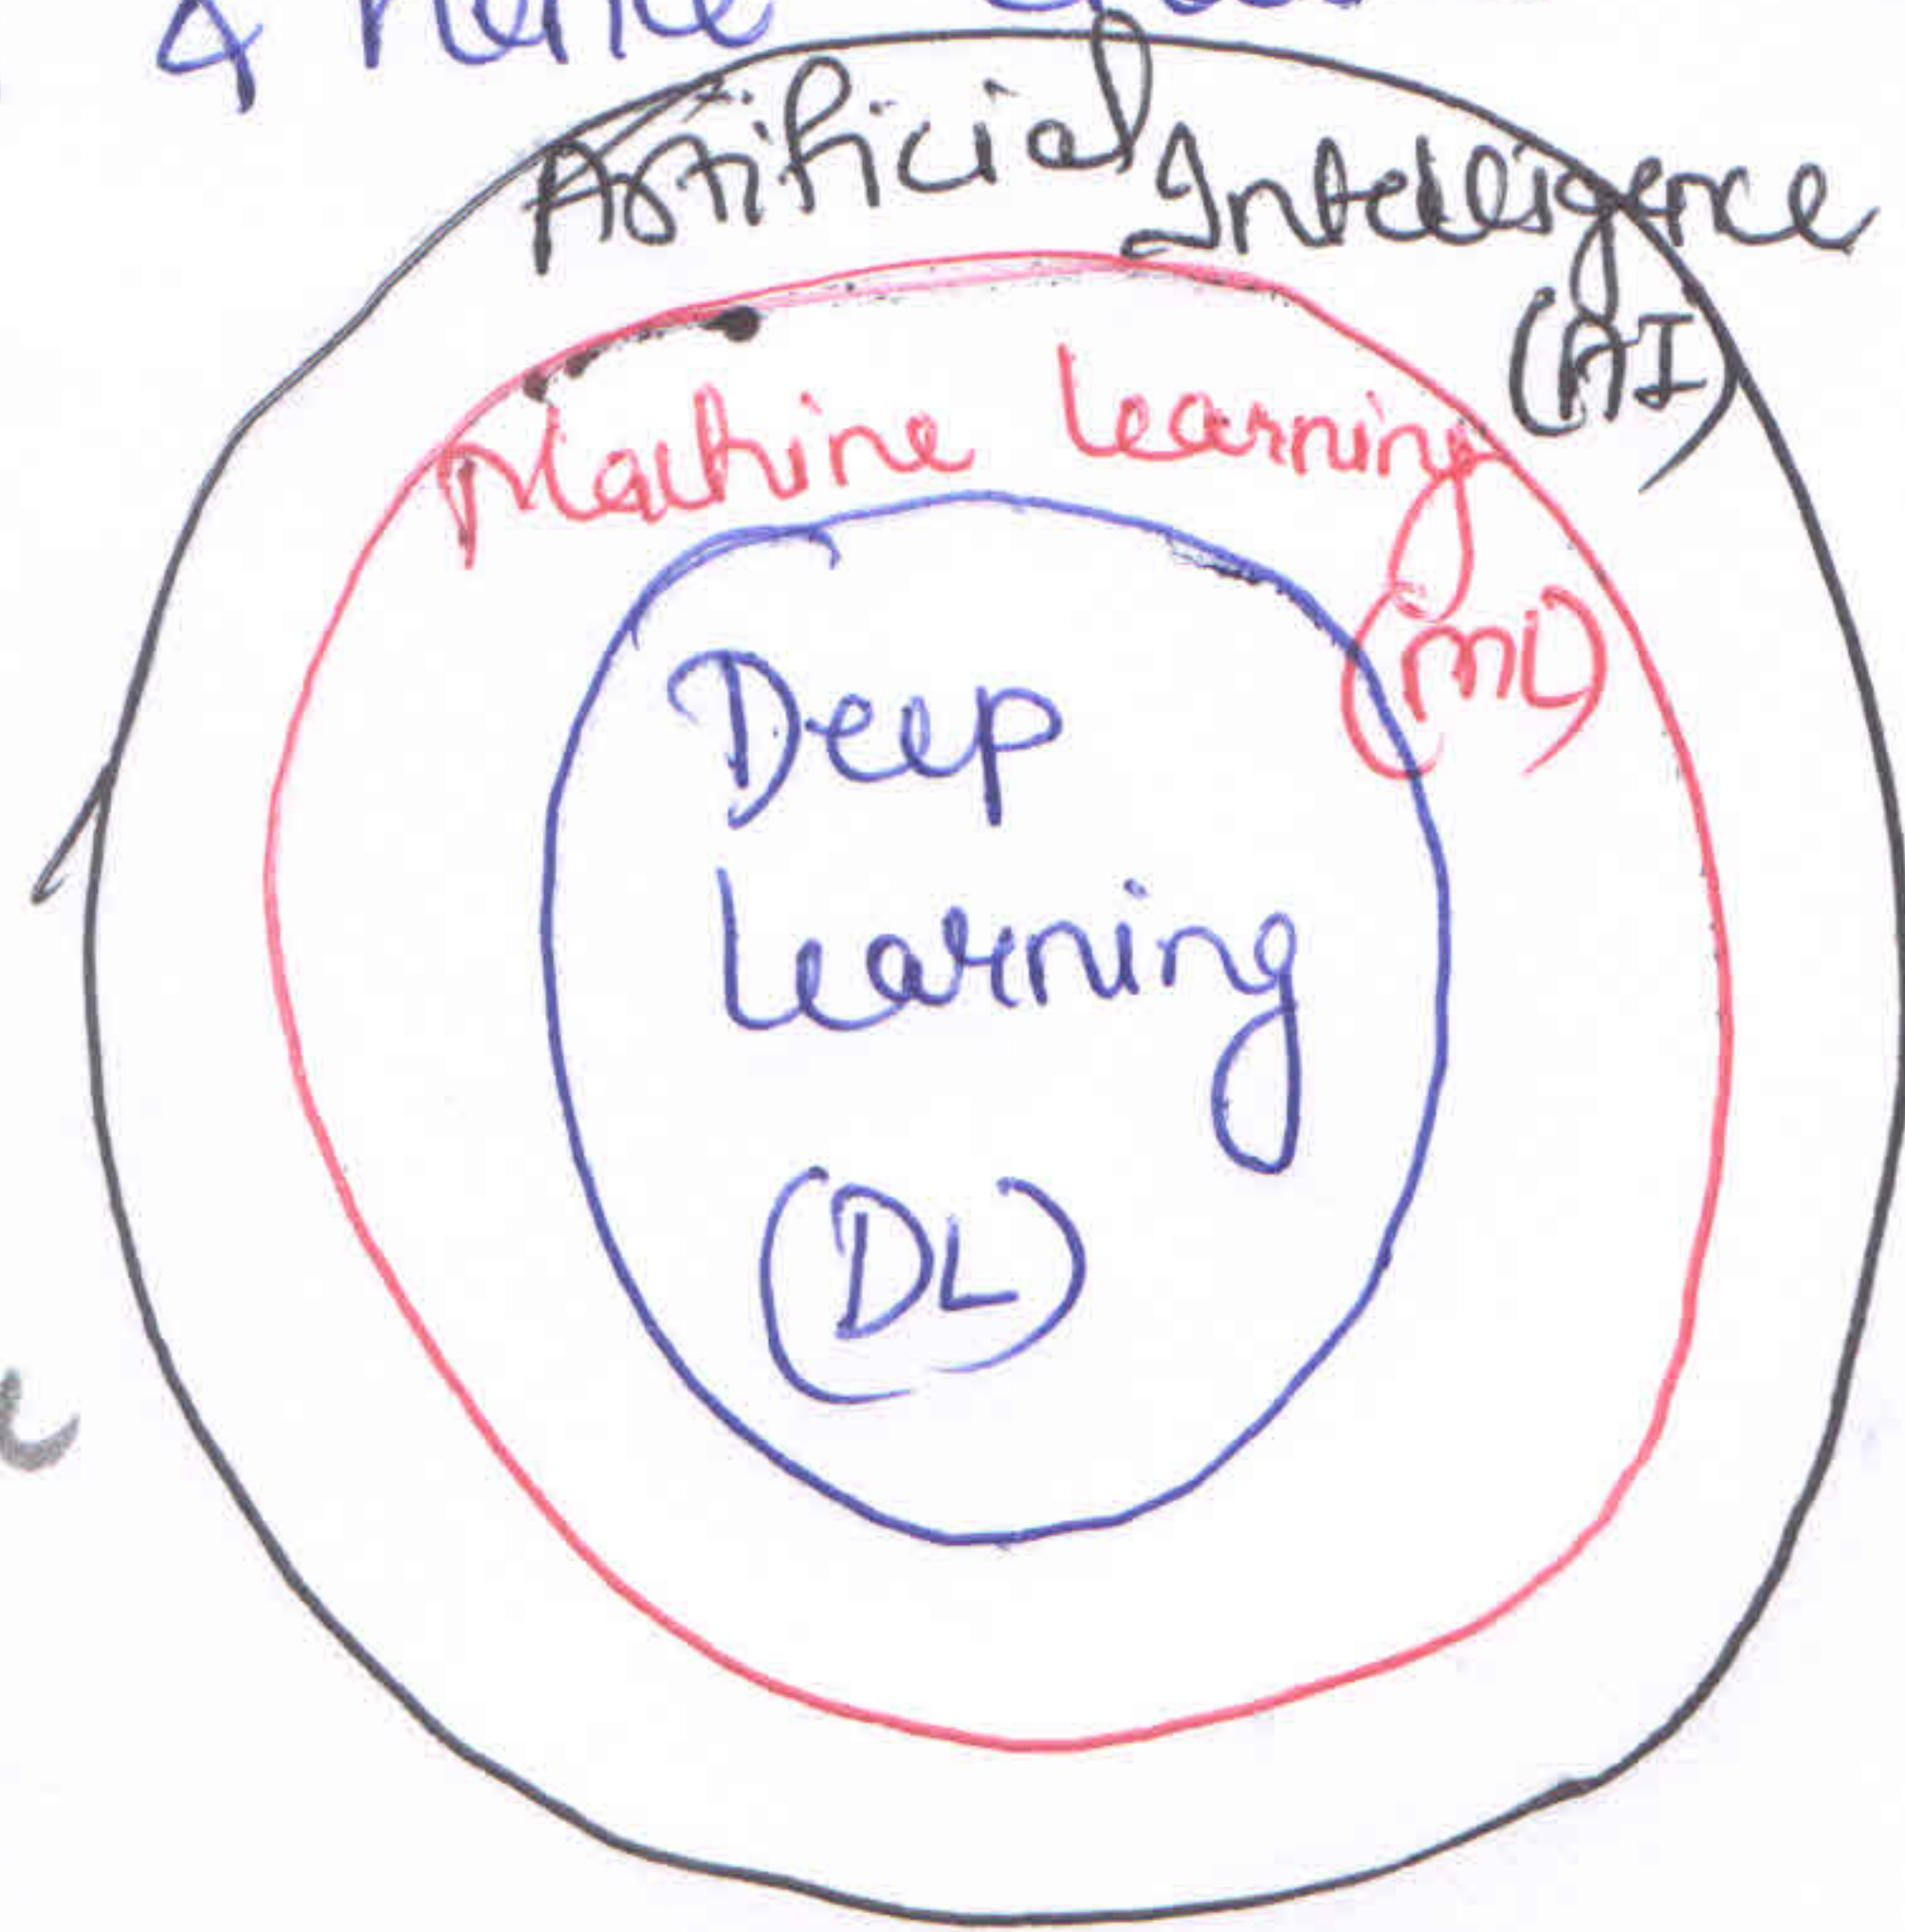 & hence
Artificial Intelligence
(AI)
Machine Learning
(ML)
Deep
Learning
(DL)